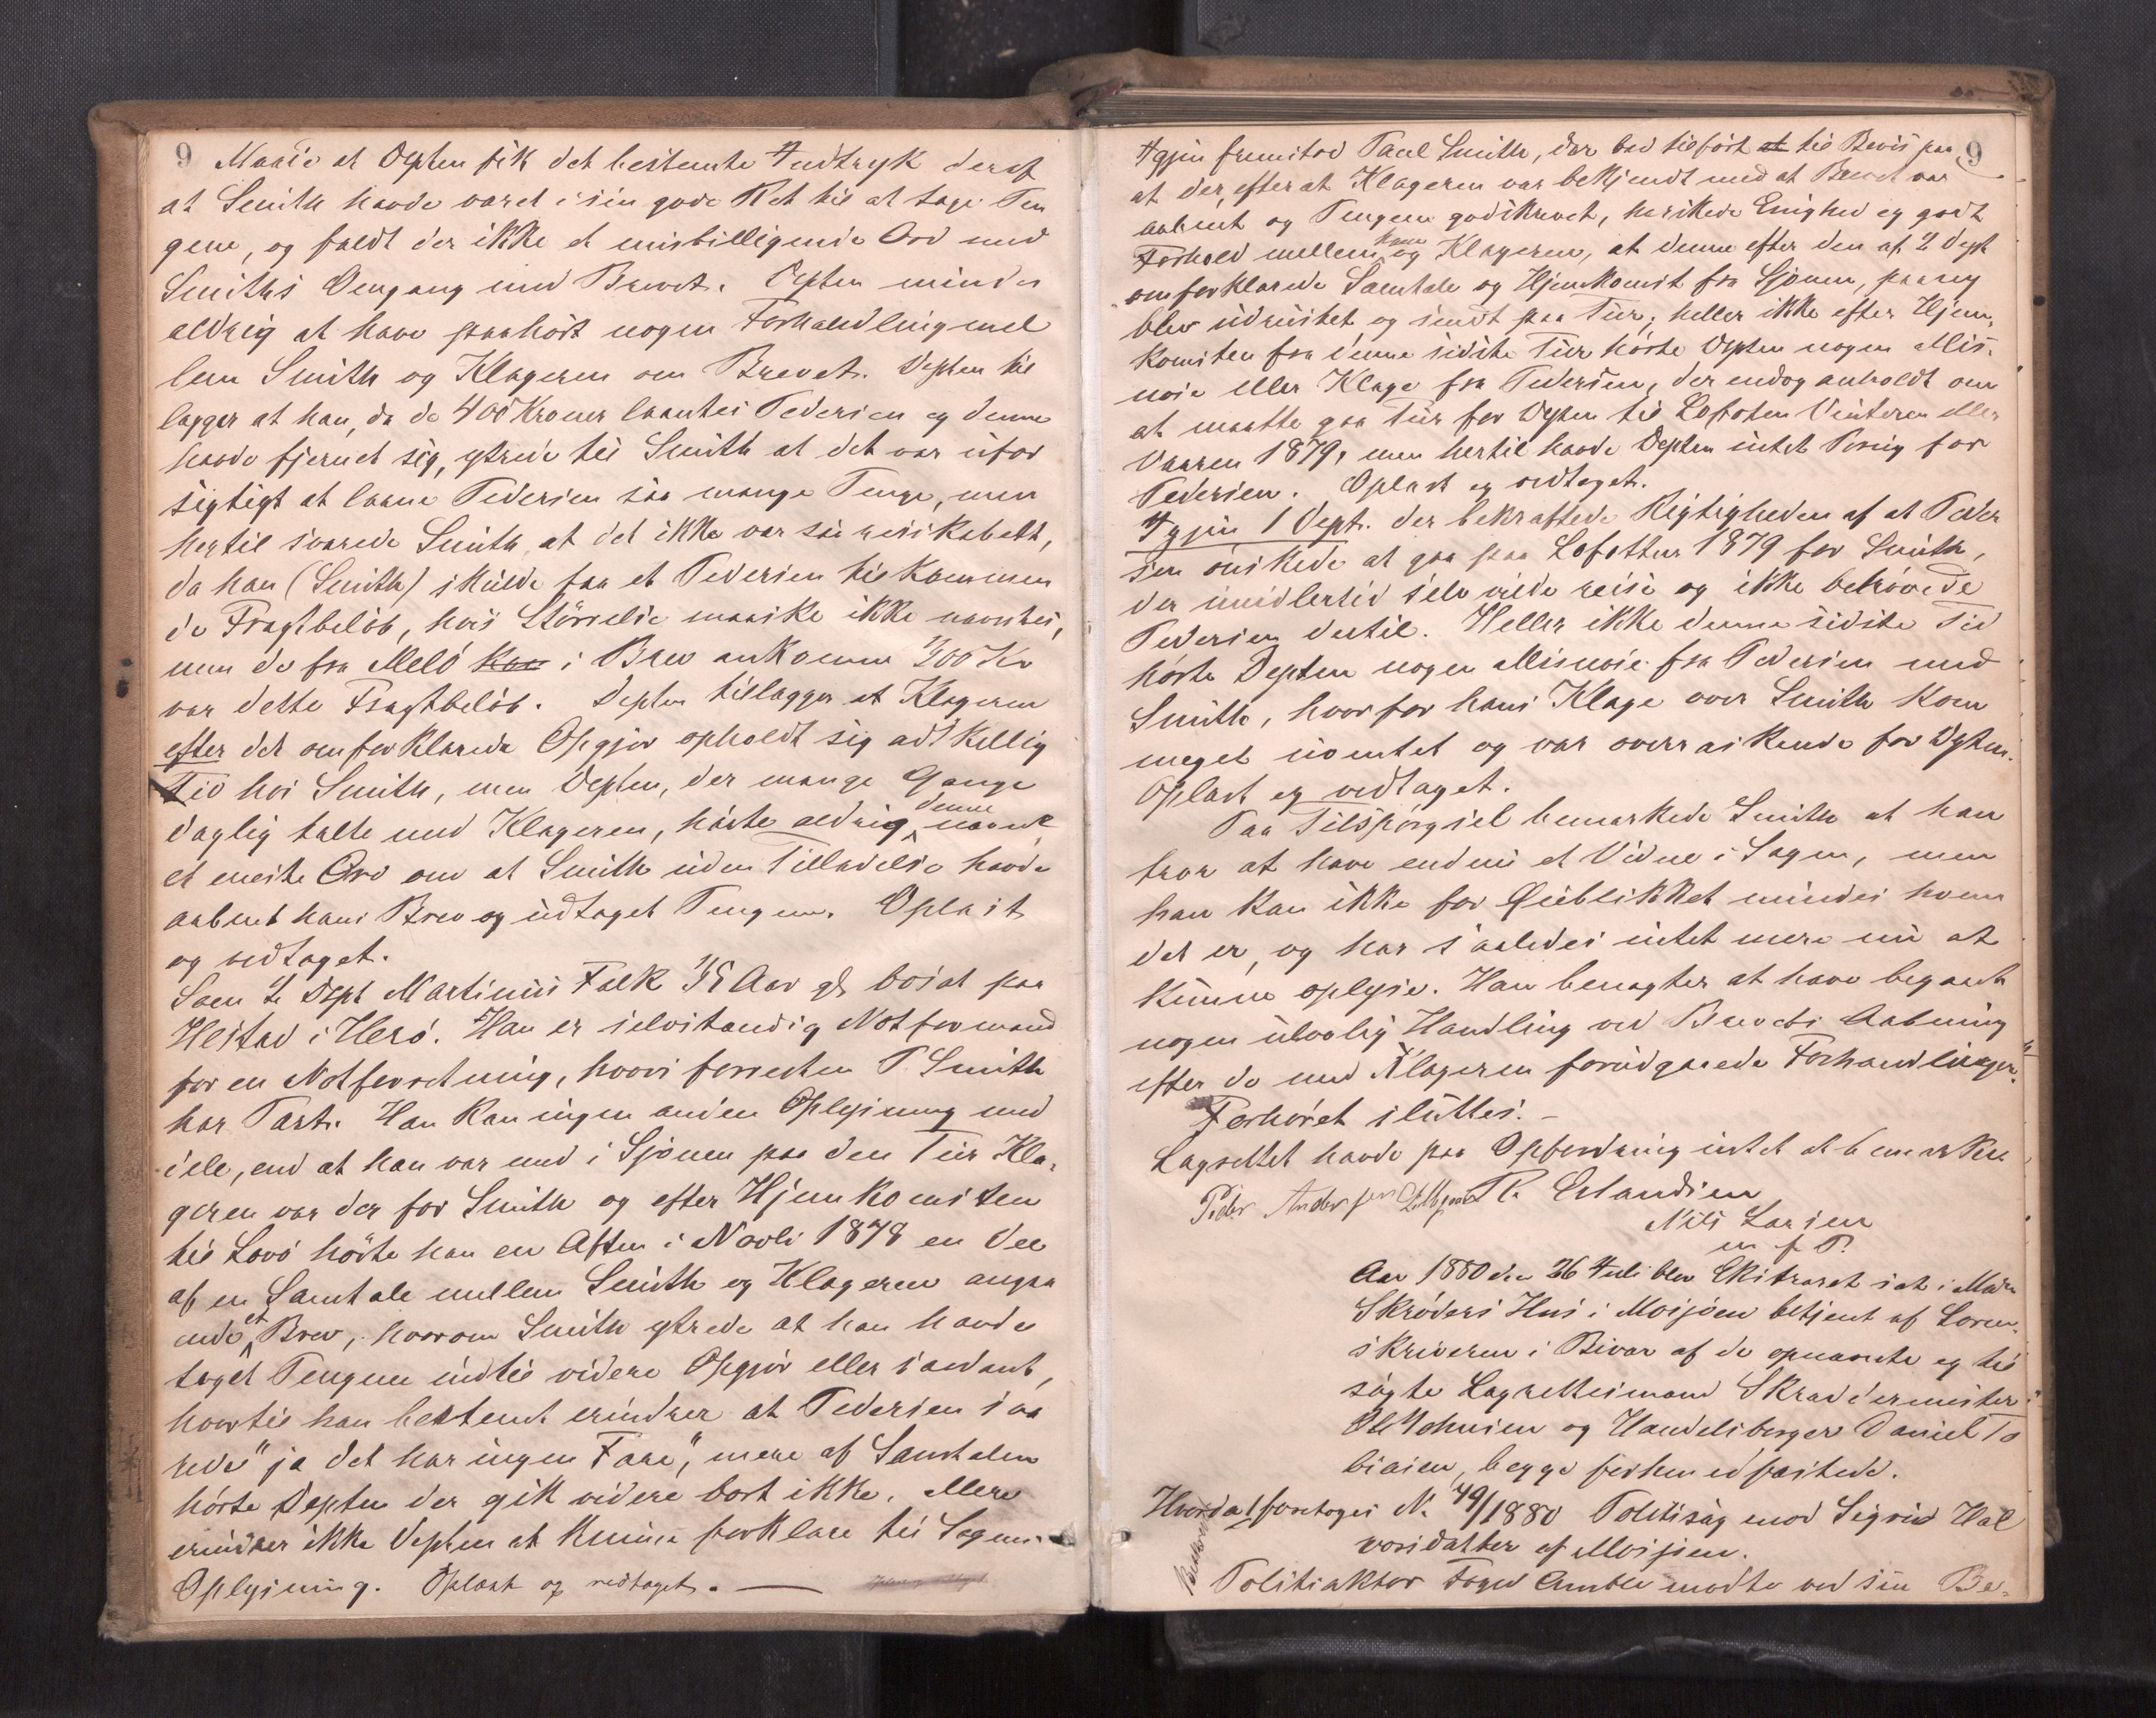 9
Maade at Depten fik det bestemte Indtryk deraf
at Smith havde været i sin gode Ret til at tage Pen
gene, og faldt der ikke et misbilligende Ord med
Smiths Omgang med Brevet. Depten mindes
aldrig at have paahört nogen Forhandling mel
lem Smith og Klageren om Brevet. Depten til
lægger at han, da de 400 Kroner laantes Pedersen og denne
havde fjernet sig, ytrede til Smith at det var ufor
sigtigt at laane Pedersen saa mange Penge, men
hertil svarede Smith, at det ikke var saa risikabelt,
da han (Smith) skulde faa et Pedersen tilkommen
de Fragtbelöb, hvis Störrelse maaske ikke nævntes,
men de fra Melö i Brev ankomne 200 Kr
var dette Fragtbelöb. Depten tillægger at Klageren
efter det omforklarede Opgjør opholdt sig adskillig
Tid hos Smith, men Depten, der mange Gange
daglig talte med Klageren, hörte aldrig denne nævne
et eneste Ord om at Smith uden Tilladelse havde
aabnet hans Brev og udtaget Pengene. Oplæst
og vedtaget.
Som 2 Dept Martinus Falk 35 Aar gl bosat paa
Helstad i Herö. Han er selvstændig Notformand
for en Notforretning, hvori forresten P. Smith
har Part. Han kan ingen anden Oplysning med
dele, end at han var med i Sjøen paa den Tur Kla-
geren var der for Smith og efter Hjemkomsten
til Lovö hörte han en Aften i Novbr 1878 en Del
af en Samtale mellem Smith og Klageren angaa
ende et Brev, hvorom Smith ytrede at han havde
taget Pengene indtil videre Opgjör eller saadant,
hvortil han bestemt erindrer at Pedersen sva
rede "ja det har ingen Fare", mere af Samtalen
hörte Depten der gik videre bort ikke. Mere
erindrer ikke Depten at kunne forklare til Sagens
Oplysning. Oplæst og vedtaget. —
9
Igjen fremstod Paul Smith, der bad tilfört at til Bevis paa
at der, efter at Klageren var bekjendt med at Brevet var
aabnet og Pengene godskrevet, herskede Enighed og godt
Forhold mellem ham og Klageren, at denne efter den af 2 Dept
omforklarede Samtale og Hjemkomst fra Sjøen, paany
blev udrustet og sendt paa Tur; heller ikke efter Hjem-
komsten fra denne sidste Tur hörte Depten nogen Mis-
nöie eller Klage fra Pedersen, der endog anholdt om
at maatte gaa Tur for Depten til Lofoten Vinteren eller
Vaaren 1879, men hertil havde Depten intet Brug for
Pedersen. Oplæst og vedtaget.
Igjen 1 Dept. der bekræftede Rigtigheden af at Peder
sen önskede at gaa paa Lofottur 1879 for Smith,
der imidlertid selv vilde reise og ikke behövede
Pedersen dertil. Heller ikke denne sidste Tid
hörte Depten nogen Misnöie fra Pedersen med
Smith, hvorfor hans Klage over Smith kom
meget uventet og var overraskende for Depten.
Oplæst og vedtaget.
Paa Tilspörgsel bemærkede Smith at han
tror at have endnu et Vidne i Sagen, men
han kan ikke for Öieblikket mindes hvem
det er, og har saaledes intet mere nu at
kunne oplyse. Han benægter at have begaaet
nogen ulovlig Handling ved Brevets Aabning
efter de med Klageren forudgaaede Forhandlinger.
Forhöret sluttes. —
Lagrettet havde paa Opfordring intet at bemærke
Peder Andersen P. Erlandsen
Nils Larsen
m f P.
Aar 1880 den 26 Juli blev Extraret sat i Mdm
Skröders Hus i Mosjöen betjent af Soren-
skriveren i Bivær af de opnævnte og til
sagte Lagrettesmænd Skræddermester
Ole Johnsen og Handelsborger Daniel To
biasen, begge forhen edfæstede.
Hvorda foretoges N. 49/1880 Politisag mod Sigrid Hal
vorsdatter af Mosjøen.
Politiaktor Foged Amble mödte ved sin Be-